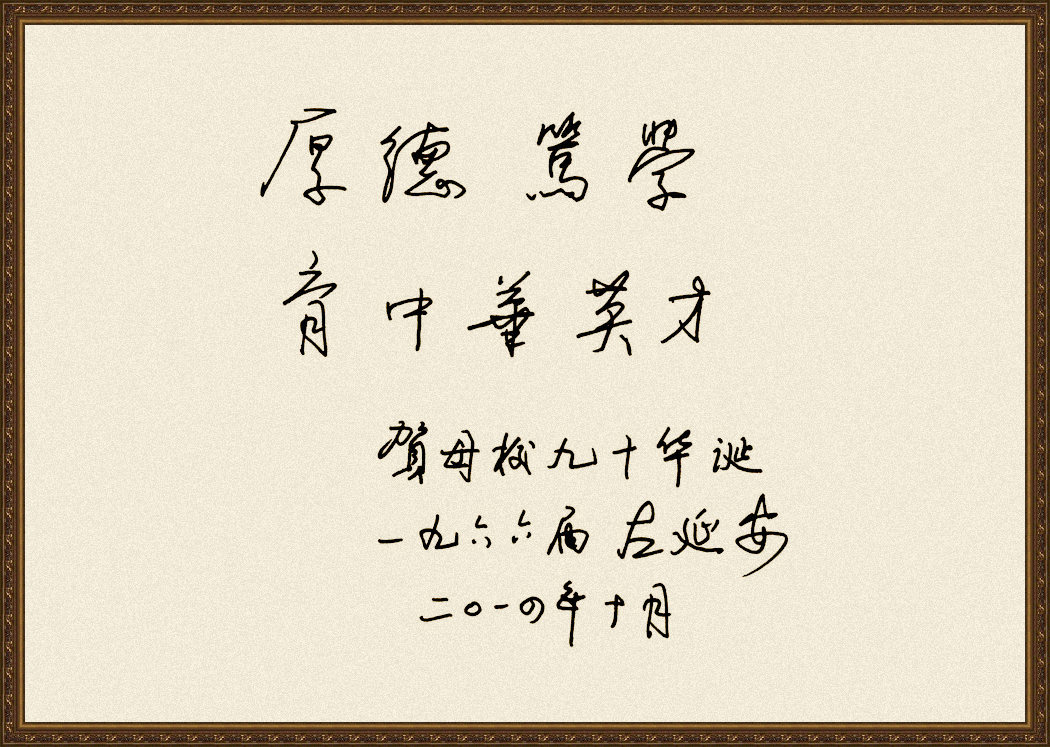 厚德 篤學
育中華英才
賀母校九十华诞
一九六六届 左延安
二〇一四年十月